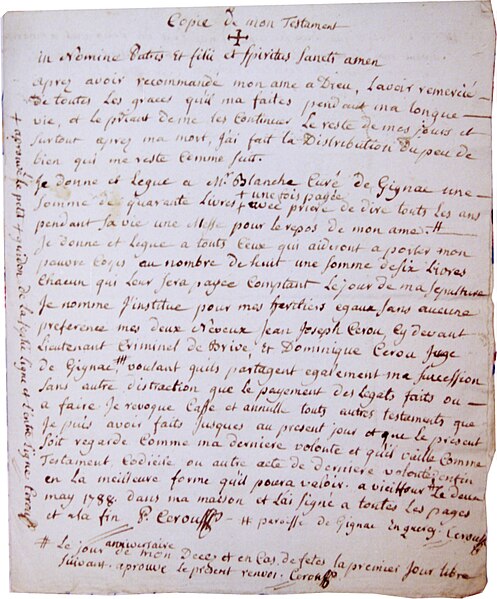 Copie de mon Testament
✝
in Nomine Patris Et filii et Spiritus Sancti amen
apres avoir recommandé mon ame a Dieu, Lavoir remercié
de toutes Les graces quil ma faites pendant ma longue
vie, et le priant de me les Continuer Le reste de mes jours et
surtout apres ma mort, J'ai fait la Distribution Du peu de
bien qui me reste Comme suit.
Je donne et Legue a Mr. Blanche Curé de Gignac une
Somme de quarante Livres + une fois payée
avec priere de dire touts Les ans
pendant sa vie une Messe pour le repos de mon ame. #
Je donne et Legue a touts Ceux qui aideront a porter mon
pauvre Corps au nombre de huit une Somme de six Livres
Chacun qui Leur sera payée Comptant Le jour de ma sepulture
Je nomme J'institue pour mes hertiers egaux, sans aucune
preference mes deux Neveux Jean Joseph Cerou, Cy devant
Lieutenant Criminel de Brive, Et Dominique Cerou Juge
de Gignac voulant quils partagent egalement ma succession
Sans autre distraction que Le payement des Legats faits ou
a faire. Je revoque Casse et annulle touts autres testaments que
Je puis avoir faits Jusques au present jour et que le present
Soit regardé Comme ma derniere volonté et quil vaille Comme
Testament, Codicile ou autre acte de derniere volonté enfin
en La meilleure forme quil poura valoir. a Le deux
may 1788. dans ma maison et L'ai signé a toutes Les pages
et a la fin P. Cerou - # paroisse de Gignac En quercy Cerou
# Le jour anniversaire
de mon Deces et en Cas de fetes la premier Jour Libre
Suivant. aprouvé Le present renvoi. Cerou
+ aprouvé La petit + guidon de la Ligne et L'entre Ligne Cerou